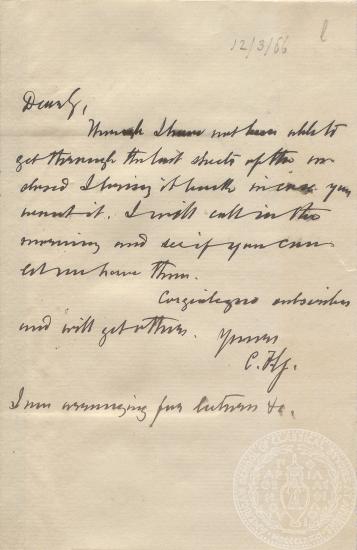 12/3/66
Dear G,
Though I have not been able to
get through the last sheets of the en
closed I bring it back in case you
want it. I will call in the
morning and see if you can
let me have them.
subscribes
and will get others.
Yours
C. Hy.
I am arranging for lectures &c.